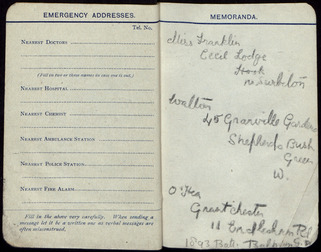 EMERGENCY ADDRESSES.
Tel. No.
NEAREST DOCTORS
(Fill in two or three names in case one is out.)
NEAREST HOSPITAL
NEAREST CHEMIST
NEAREST AMBULANCE STATION
NEAREST POLICE STATION
NEAREST FIRE ALARM
Fill in the above very carefully. When sending a
message let it be a written one as verbal messages are
often misconstrued.
MEMORANDA.
Miss Franklin
Cecil Lodge
Hook
nr Surbiton
Walton
45 Granville Gardens
Shepherds Bush
Green
W.
O'Hea
Grantchester
11
Rd
1893